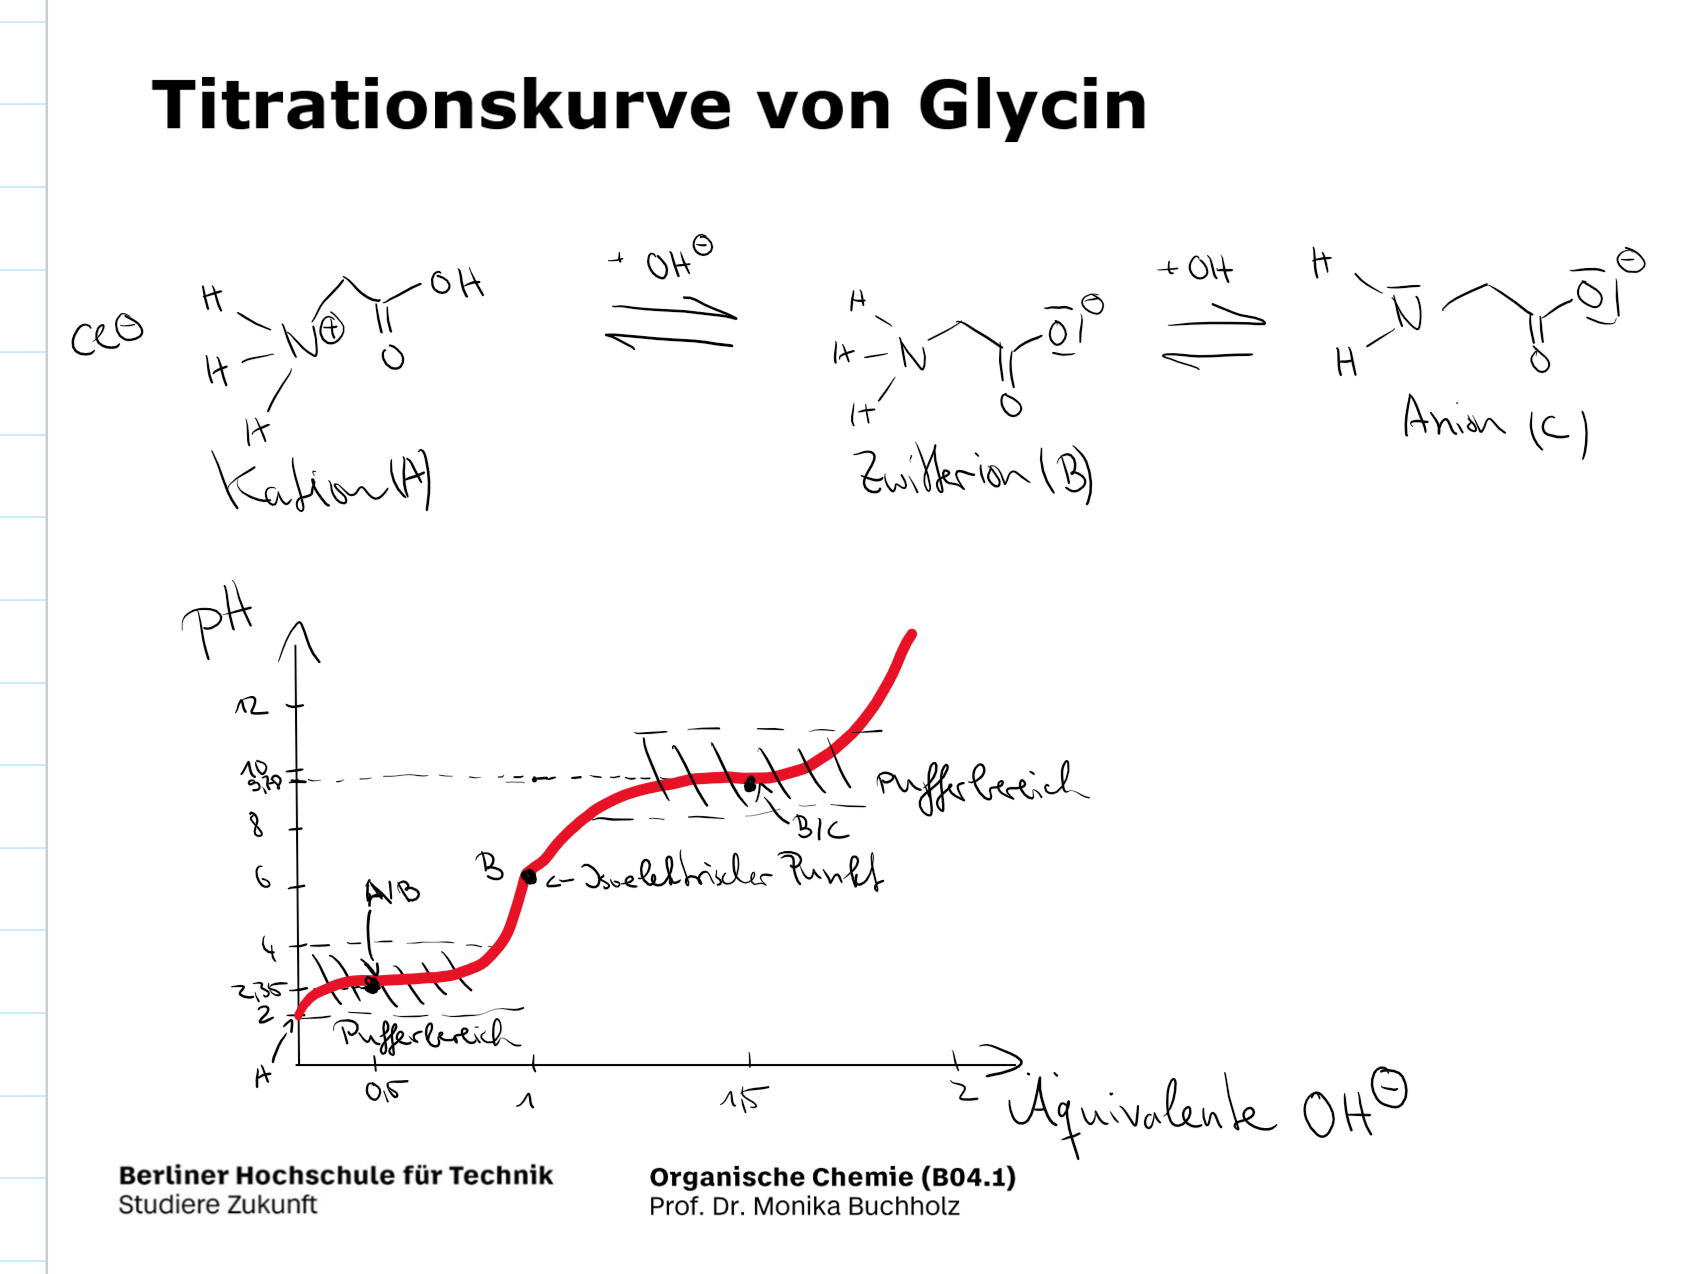 Titrationskurve von Glycin
Cl⊖
H
H
H
N⊕
OH
O
+ OH⊖
H
H
H
N
O⊖
O
+ OH
H
H
N
O⊖
O
Kation (A)
Zwitterion (B)
Anion (C)
pH
12
10
9,78
8
6
4
2,35
2
A
A/B
B
← Isoelektrischer Punkt
B/C
Pufferbereich
Pufferbereich
0,5
1
1,5
2
Äquivalente OH⊖
Berliner Hochschule für Technik
Studiere Zukunft
Organische Chemie (B04.1)
Prof. Dr. Monika Buchholz